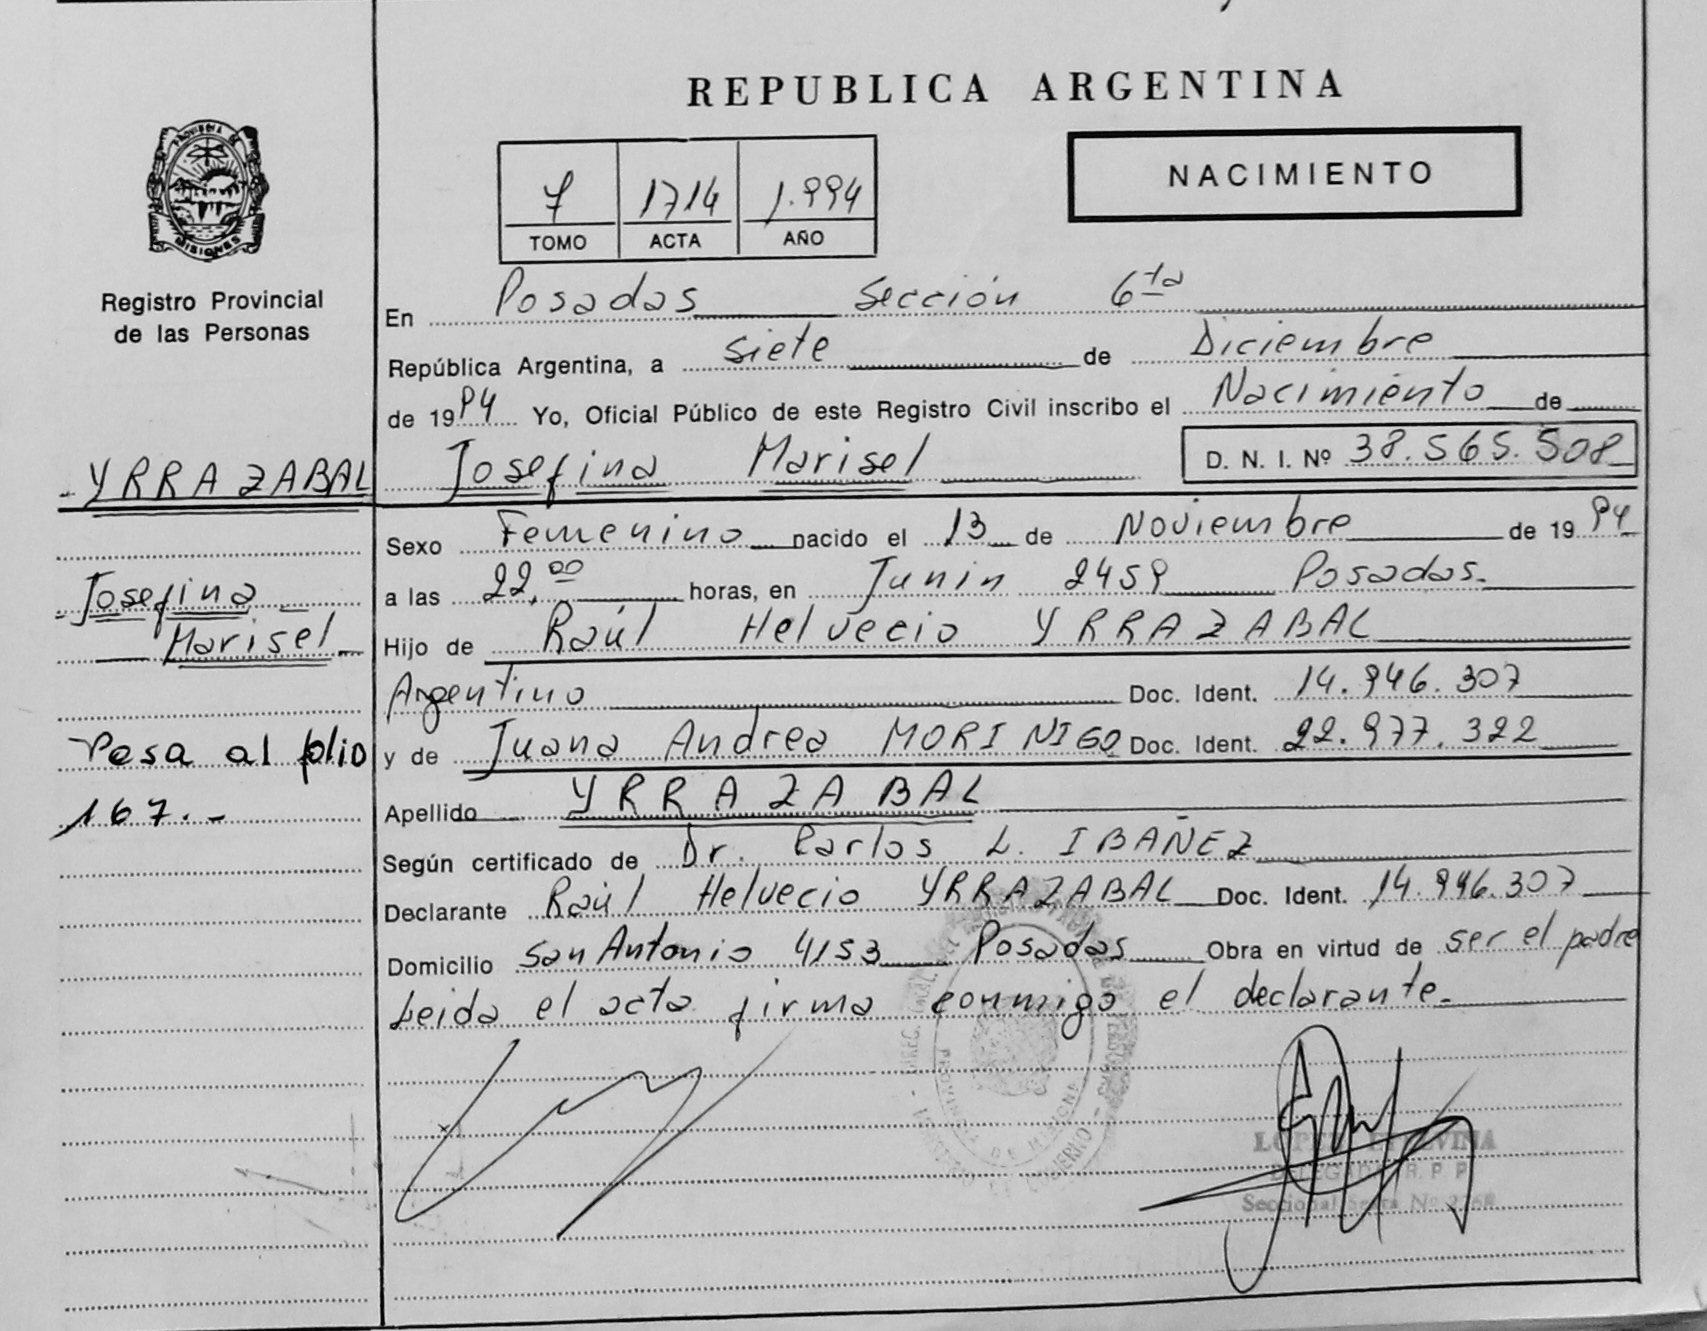 REPUBLICA ARGENTINA
NACIMIENTO
7 1714 1.994
TOMO ACTA AÑO
PROVINCIA DE
MISIONES
Registro Provincial
de las Personas
En Posadas Sección 6ta
República Argentina, a siete de Diciembre
de 1994 Yo, Oficial Público de este Registro Civil inscribo el Nacimiento de
YRRAZABAL Josefina Marisel D. N. I. Nº 38.565.508
Sexo Femenino nacido el 13 de Noviembre de 1994
a las 22,00 horas, en Junin 2459 Posadas.
Josefina
Marisel
Hijo de Raúl Helvecio YRRAZABAL
Argentino Doc. Ident. 14.946.307
y de Juana Andrea MORINIGO Doc. Ident. 22.977.322
Pasa al folio
167.-
Apellido YRRAZABAL
Según certificado de Dr. Carlos L. IBAÑEZ
Declarante Raúl Helvecio YRRAZABAL Doc. Ident. 14.946.307
Domicilio San Antonio 4153 Posadas Obra en virtud de ser el padre
Leida el acta firma conmigo el declarante.
PROVINCIA DE MISIONES
GOBIERNO
LOPEZ
DELEGADA R. P. P.
Seccional Sexta Nº